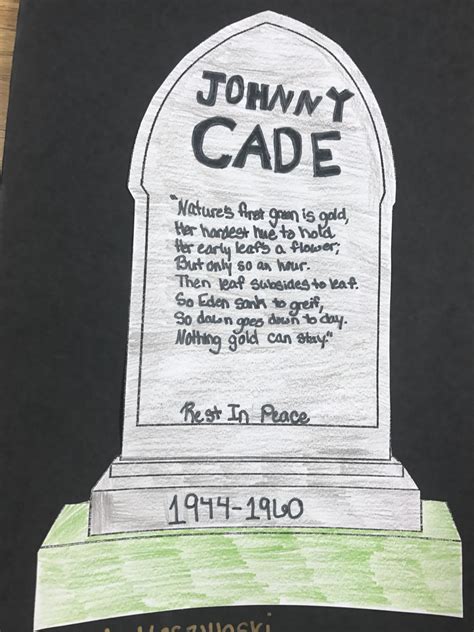 JOHNNY
CADE
"Nature's first green is gold,
Her hardest hue to hold
Her early leaf's a flower;
But only so an hour.
Then leaf subsides to leaf.
So Eden sank to greif,
So dawn goes down to day.
Nothing gold can stay."
Rest In Peace
1944-1960